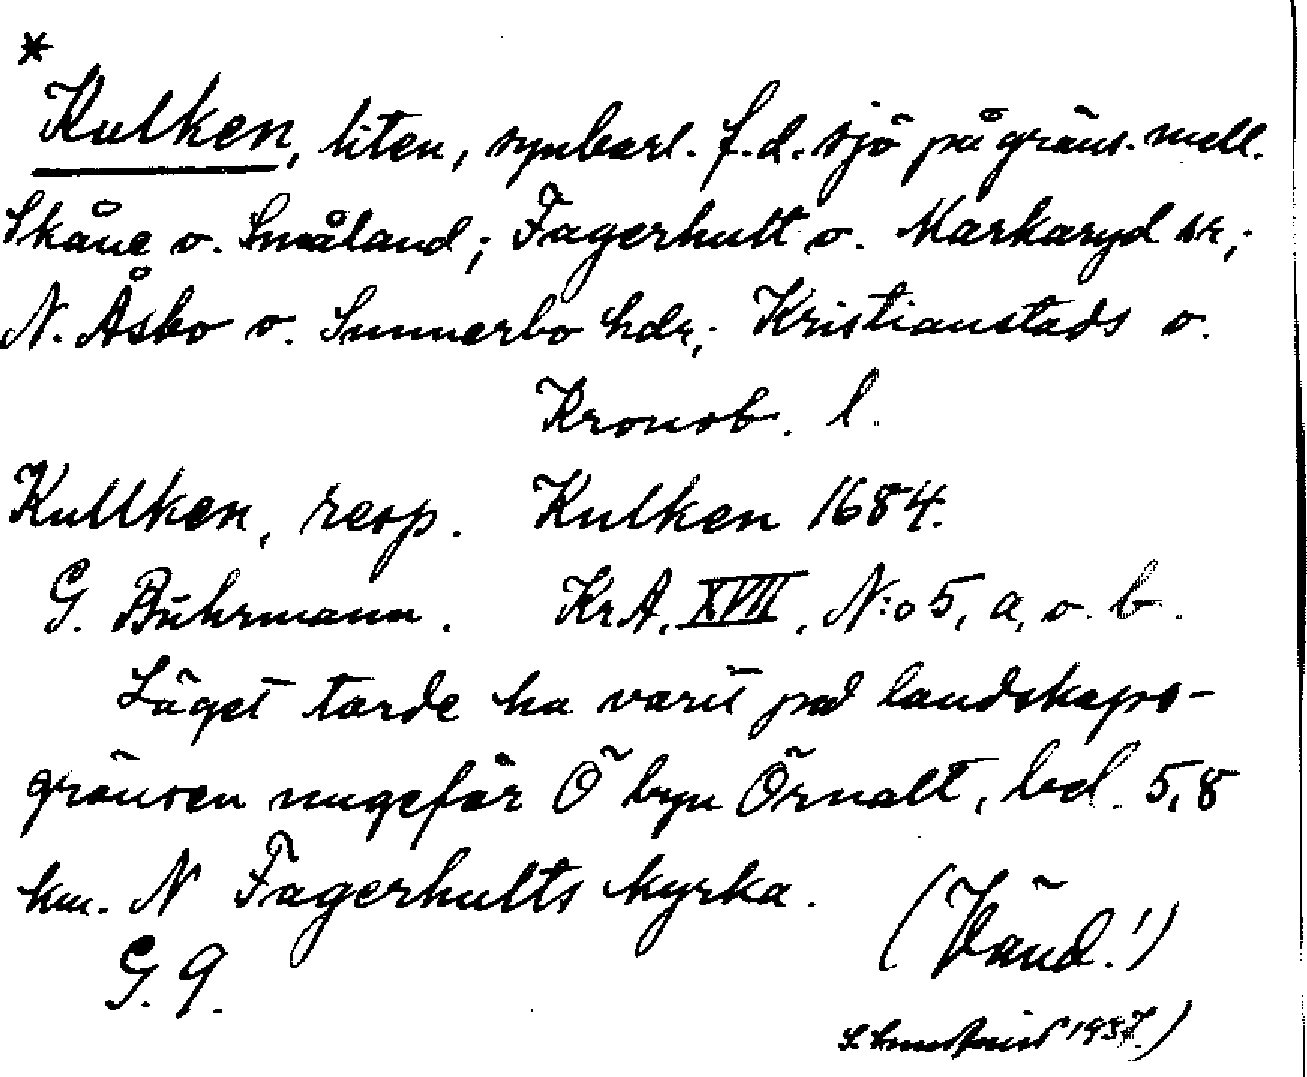 *
Kulken, liten, synbarl. f.d. sjö på gräns. mell.
Skåne o. Småland; Fagerhult o. Markaryd sr;
N. Åsbo o. Sunnerbo hdr; Kristianstads o.
Kronob. l.
Kullken, resp. Kulken 1684.
G. Buhrmann. KrA, XVII, N:o 5, a, o. b.
Läget torde ha varit på landskaps-
gränsen ungefär Ö byn Örnalt, bel. 5,8
km. N Fagerhults kyrka.
(Vänd!)
G. 9.
1937.)